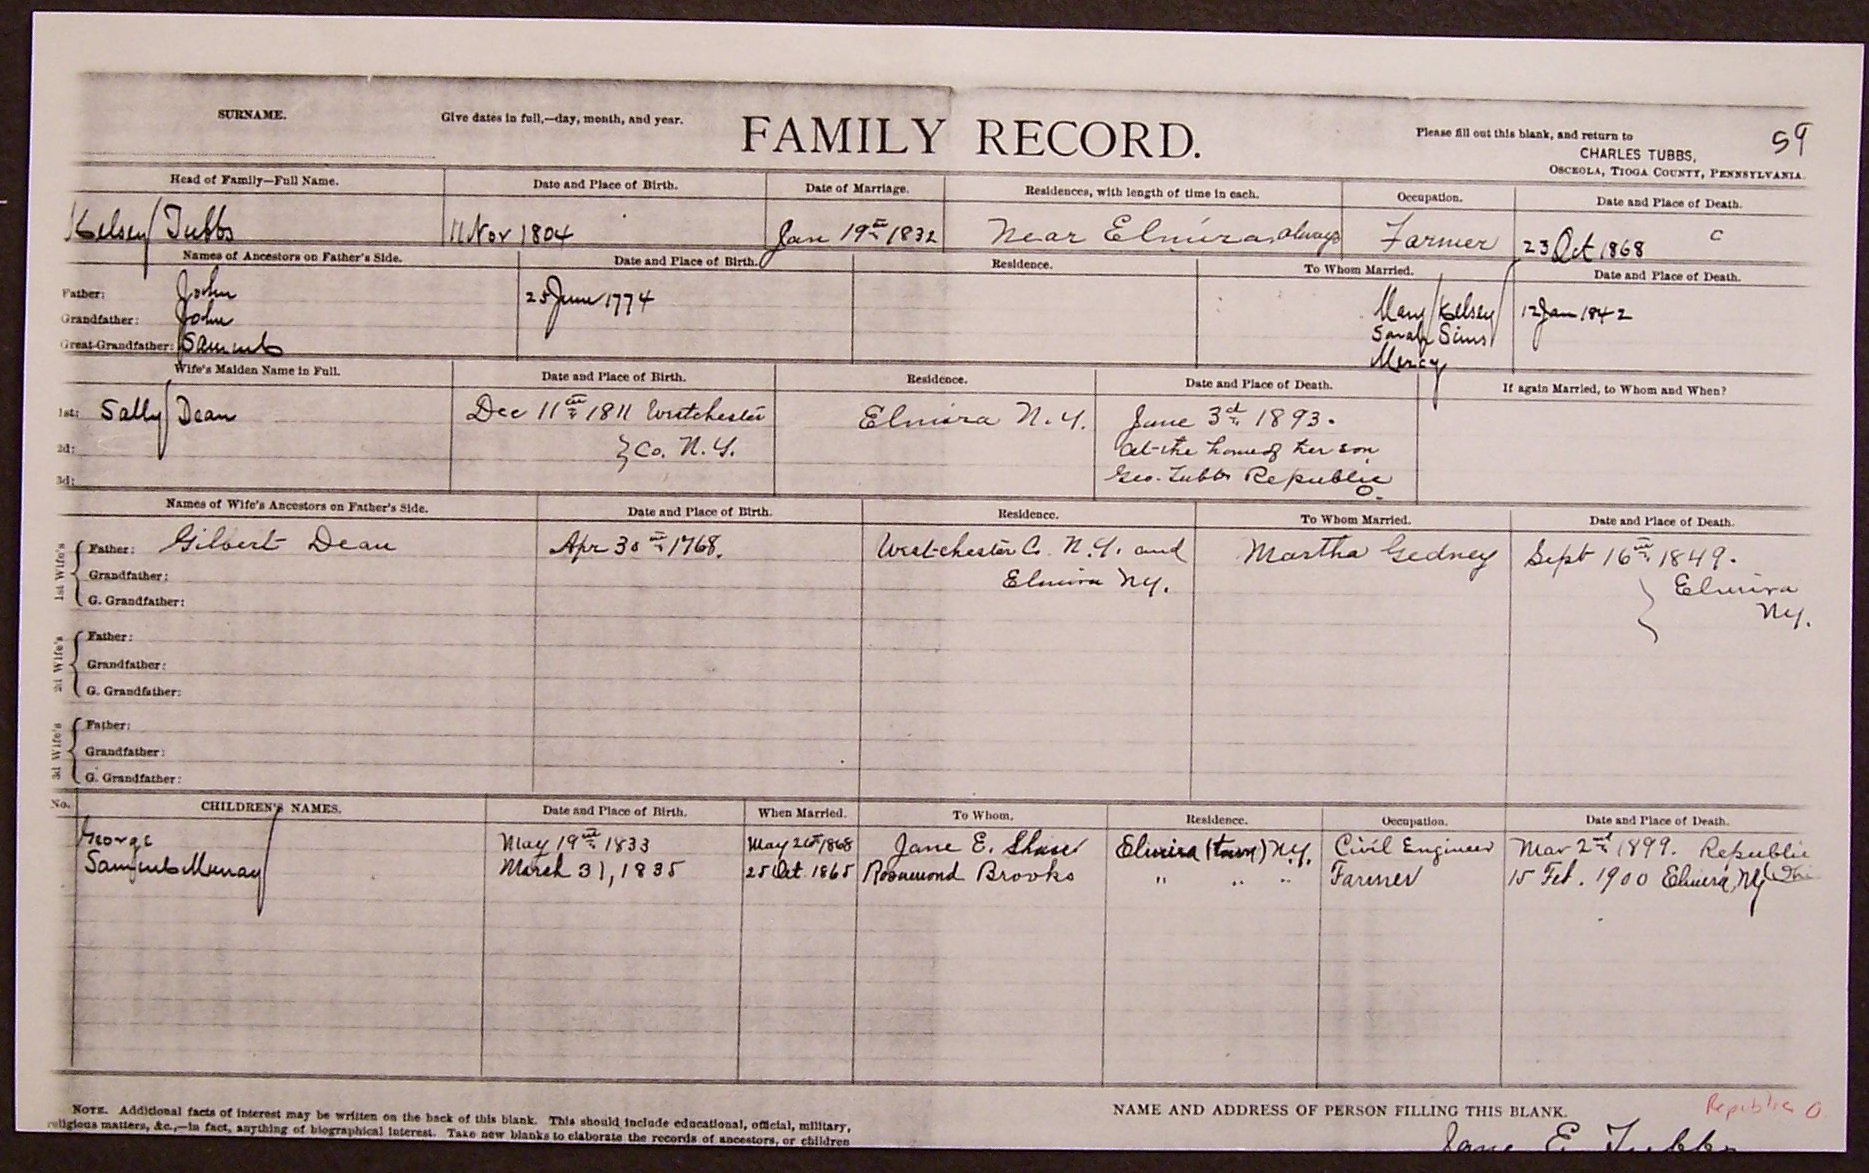 SURNAME.
Give dates in full,—day, month, and year.
FAMILY RECORD.
Please fill out this blank, and return to
CHARLES TUBBS,
OSCEOLA, TIOGA COUNTY, PENNSYLVANIA.
59
Head of Family—Full Name. Date and Place of Birth. Date of Marriage. Residences, with length of time in each. Occupation. Date and Place of Death.
Kelsey Tubbs 11 Nov 1804 Jan 19th 1832 Near Elmira, always Farmer 23 Oct 1868
Names of Ancestors on Father's Side. Date and Place of Birth. Residence. To Whom Married. Date and Place of Death.
Father: John 25 June 1774 Mary Kelsey 12 Jan 1842
Grandfather: John Sarah Sims
Great-Grandfather: Samuel Mercy
Wife's Maiden Name in Full. Date and Place of Birth. Residence. Date and Place of Death. If again Married, to Whom and When?
1st: Sally Dean Dec 11th 1811 Westchester Elmira N.Y. June 3d 1893.
2d: Co. N.Y. at the home of her son
3d: Geo. Tubbs Republic O.
Names of Wife's Ancestors on Father's Side. Date and Place of Birth. Residence. To Whom Married. Date and Place of Death.
1st Wife's
Father: Gilbert Dean Apr 30th 1768. Westchester Co. N.Y. and Martha Gedney Sept 16th 1849.
Grandfather: Elmira NY. Elmira
G. Grandfather: NY.
2d Wife's
Father:
Grandfather:
G. Grandfather:
3d Wife's
Father:
Grandfather:
G. Grandfather:
No. CHILDREN'S NAMES. Date and Place of Birth. When Married. To Whom. Residence. Occupation. Date and Place of Death.
George May 19th 1833 May 26 1868 Jane E. Elmira (town) NY. Civil Engineer Mar 2nd 1899. Republic
Samuel Murray March 31, 1835 25 Oct 1865 Rosamond Brooks " " " Farmer 15 Feb. 1900 Elmira, NY
NOTE. Additional facts of interest may be written on the back of this blank. This should include educational, official, military,
religious matters, &c.,—in fact, anything of biographical interest. Take new blanks to elaborate the records of ancestors, or children
NAME AND ADDRESS OF PERSON FILLING THIS BLANK.
Republic O.
Jane E. Tubbs